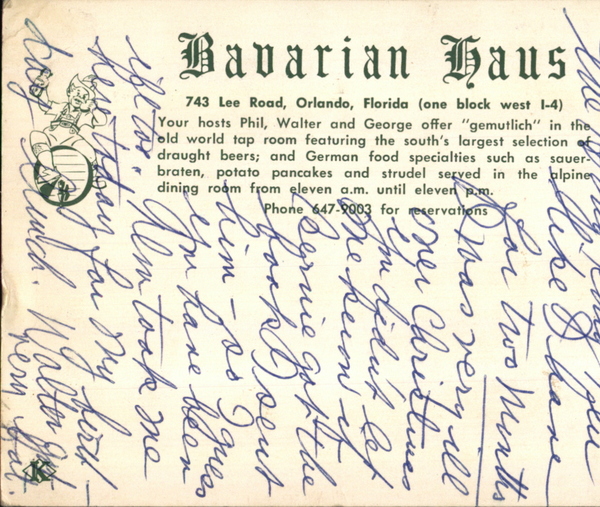 Bavarian Haus
743 Lee Road, Orlando, Florida (one block west I-4)
Your hosts Phil, Walter and George offer "gemutlich" in the
old world tap room featuring the south's largest selection of
draught beers; and German food specialties such as sauer-
braten, potato pancakes and strudel served in the alpine
dining room from eleven a.m. until eleven p.m.
Phone 647-9003 for reservations
you
like I have
for two months
I was very ill
over Christmas
You didn't let
me know if
Bernie got the
book I sent
him - so I guess
you have been
ill too. took me
here today for my bird-
day lunch. Walter got
very fat.
K